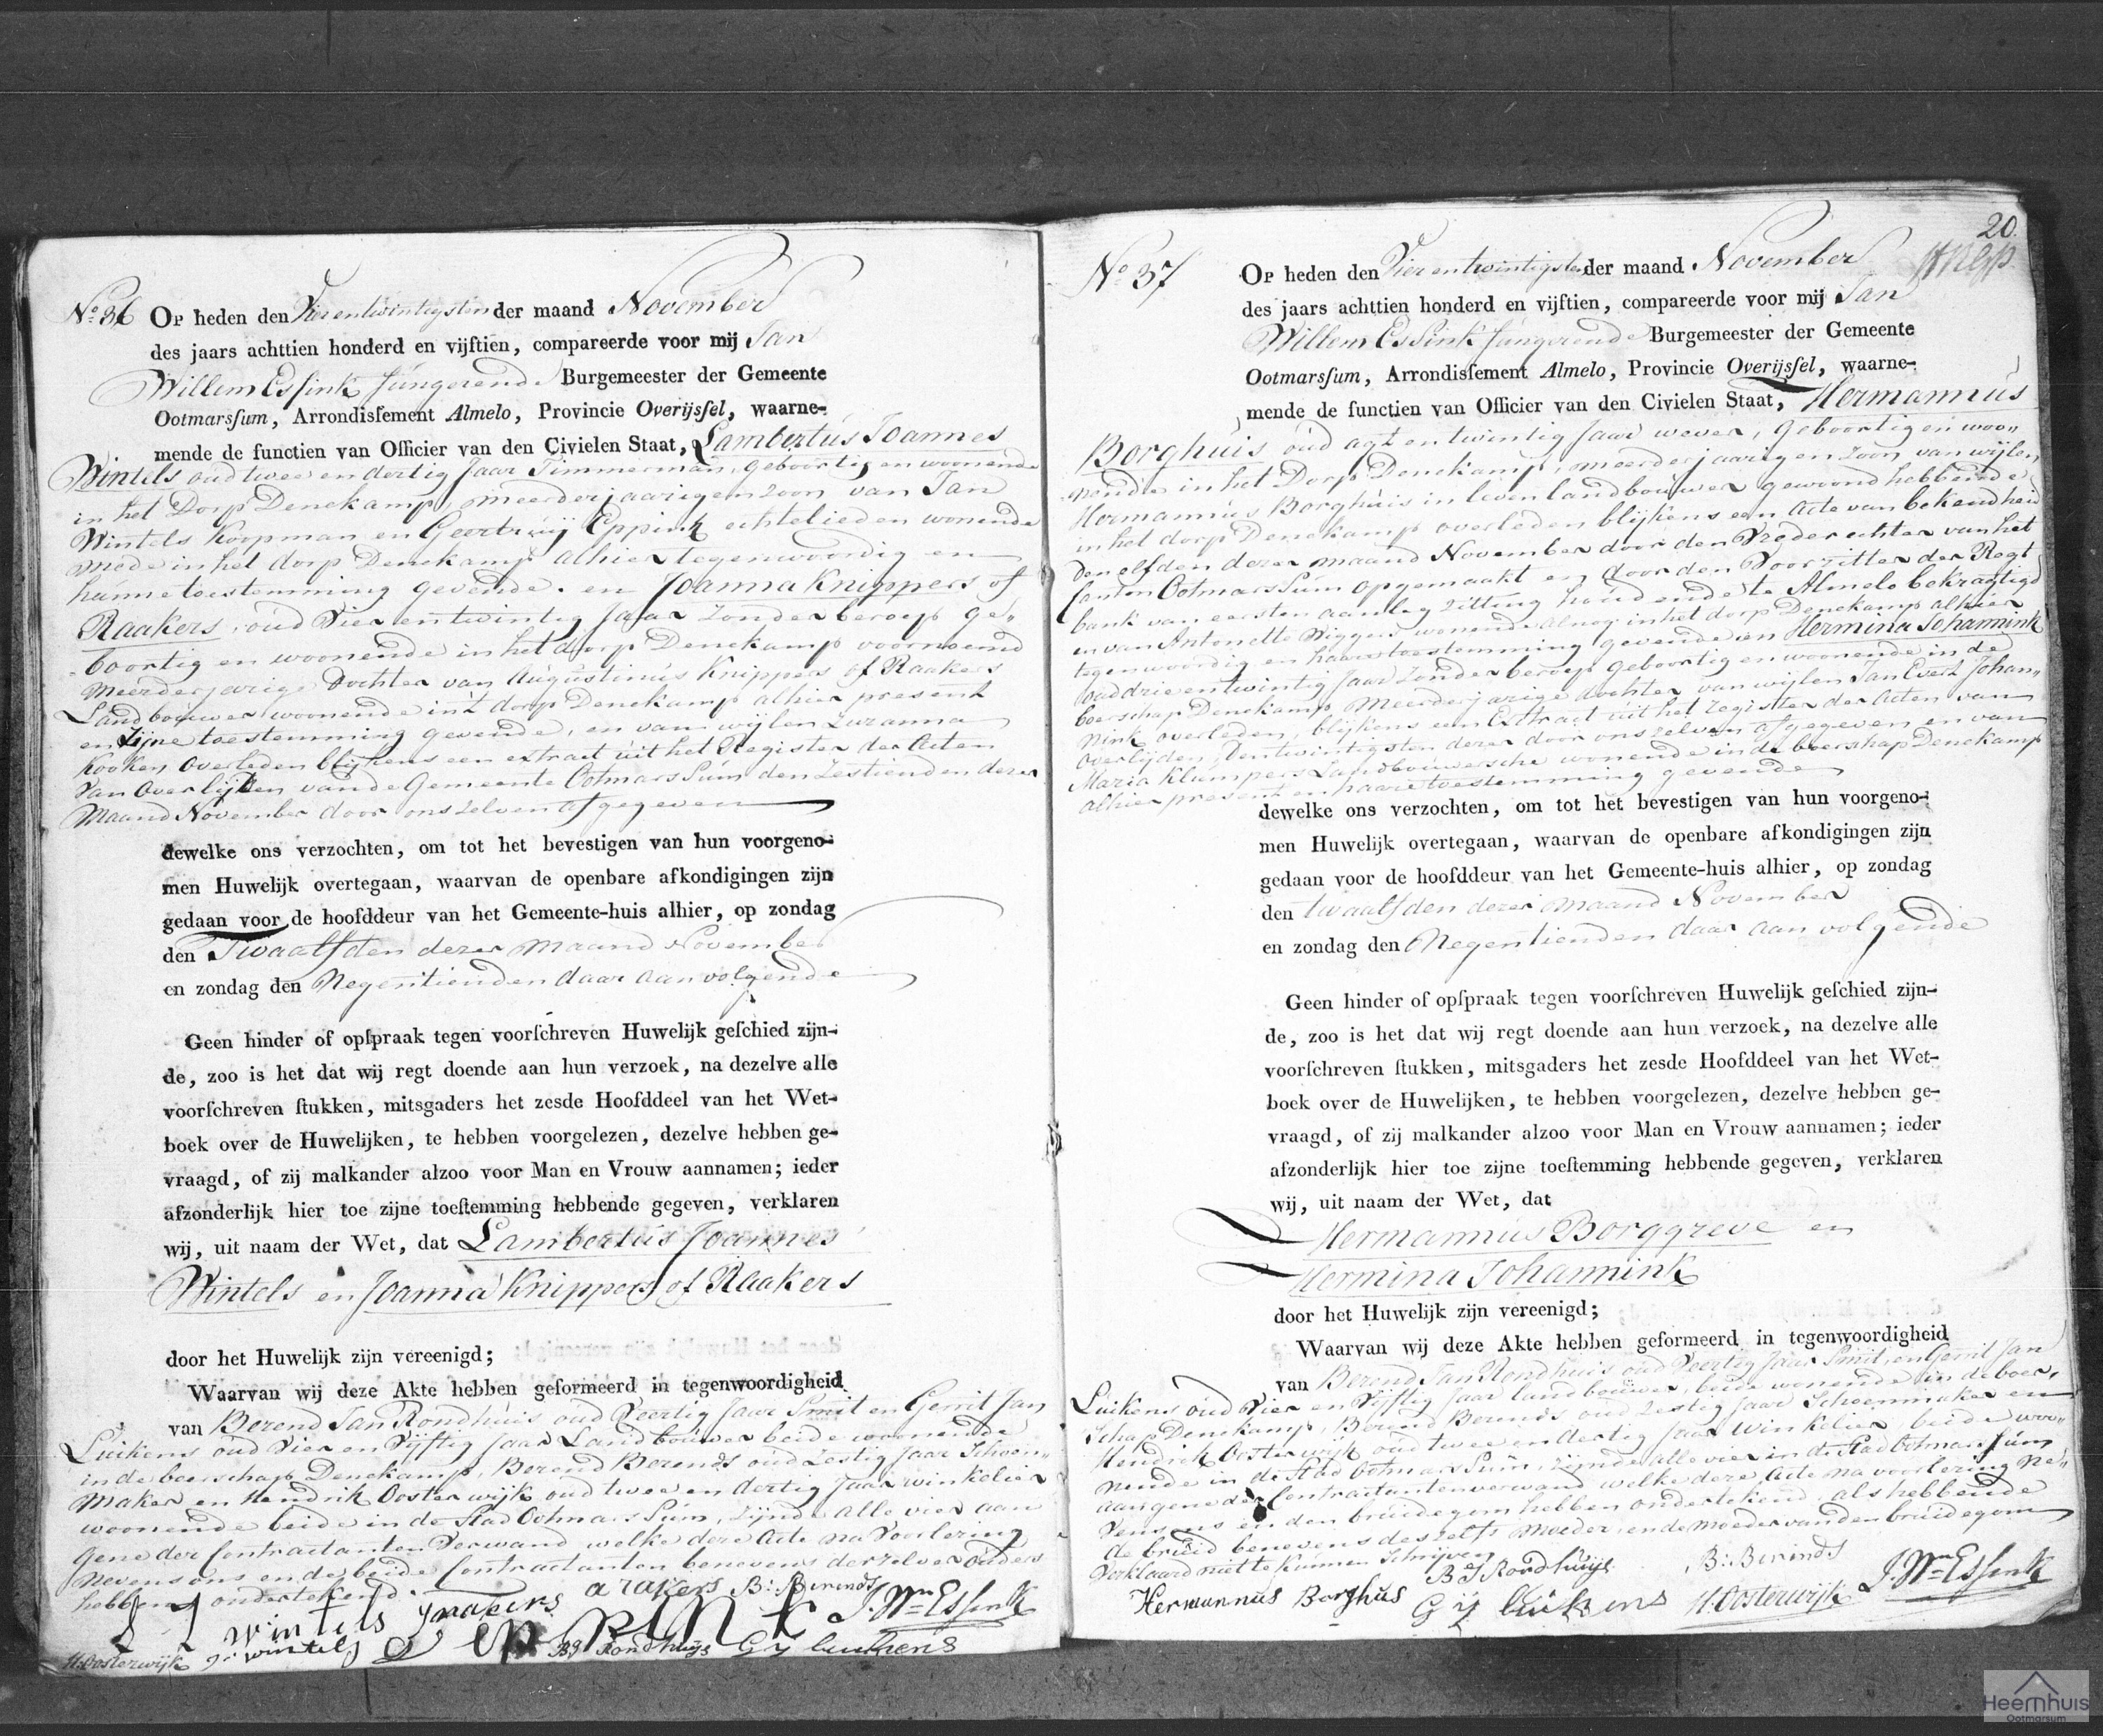 No. 36 Op heden den Vierentwintigsten der maand November
des jaars achttien honderd en vijftien, compareerde voor mij Jan
Willem Essink fungerende Burgemeester der Gemeente
Ootmarsſum, Arrondisſement Almelo, Provincie Overijsſel, waarne-
mende de functien van Officier van den Civielen Staat, Lambertus Joannes
Wintels oud twee en dertig Jaar Timmerman, geboortig en woonende
in het Dorp Denekamp, meerderjaarigen zoon van Jan
Wintels Koopman en Geertruij Eppink echtelieden wonende
mede in het dorp Denekamp alhier tegenwoordig en
hunne toestemming gevende. en Joanna Knippers of
Raakers, oud Vier en twintig Jaar zonder beroep ge„
boortig en woonende in het dorp Denekamp voornoemd
meerderjarige Dochter van Augustinus Knippers of Raakers
Landbouwer woonende in't dorp Denekamp alhier present
en zijne toestemming gevende, en van wijlen Zuzanna
Kooken overleden blijkens een extract uit het Register der Acten
van Overlijden van de Gemeente OotmarsSum den Zestienden dezer
Maand November door ons zelven afgegeven
dewelke ons verzochten, om tot het bevestigen van hun voorgeno-
men Huwelijk overtegaan, waarvan de openbare afkondigingen zijn
gedaan voor de hoofddeur van het Gemeente-huis alhier, op zondag
den Twaalfden dezer maand November
en zondag den Negentienden daar aan volgende
Geen hinder of opſpraak tegen voorſchreven Huwelijk geſchied zijn-
de, zoo is het dat wij regt doende aan hun verzoek, na dezelve alle
voorſchreven ſtukken, mitsgaders het zesde Hoofddeel van het Wet-
boek over de Huwelijken, te hebben voorgelezen, dezelve hebben ge-
vraagd, of zij malkander alzoo voor Man en Vrouw aannamen; ieder
afzonderlijk hier toe zijne toeſtemming hebbende gegeven, verklaren
wij, uit naam der Wet, dat Lambertus Joannes
Wintels en Joanna Knippers of Raakers
door het Huwelijk zijn vereenigd;
Waarvan wij deze Akte hebben geformeerd in tegenwoordigheid
van Berend Jan Rondhuis oud Veertig Jaar Smit en Gerrit Jan
Luikens oud Vier en Vijftig Jaar Landbouwer beide woonende
in de boerschap Denekamp, Berend Berends oud Zestig Jaar Schoen„
maker en Hendrik Oosterwijk oud twee en dertig Jaar winkelier
woonende beide in de Stad OotmarsSum, zijnde alle vier aan
gene der Contractanten Verwand welke deze Acte na Voorlezing
nevens ons en de beide Contractanten benevens derzelver ouders
hebben ondertekend.
wintels J raakers a rakers B: Berends J. Wm Essink
H: Oosterwijk wintels eppink BJ Rondhuijs GJ luikens
20.
No. 37 Op heden den Vier en twintigsten der maand November
des jaars achttien honderd en vijftien, compareerde voor mij Jan
Willem EsSink fungerende Burgemeester der Gemeente
Ootmarsſum, Arrondisſement Almelo, Provincie Overijsſel, waarne-
mende de functien van Officier van den Civielen Staat, Hermannus
Borghuis oud agt en twintig Jaar wever, geboortig en woo„
nende in het Dorp Denekamp, meerderjaarigen zoon van wijlen
Hermannus Borghuis in leven landbouwer gewoond hebbende
in het dorp Denekamp overleden blijkens een Acte van bekendheid
den elfden dezer maand November door den Vrederechter van het
Canton OotmarsSum opgemaakt en door den Voorzitter der Regt
bank van eersten aanleg zitting houdende te Almelo bekragtigd
en van Antonette Wiggers wonende alnog in het dorp Denekamp alhier
tegenwoordig en haare toestemming gevende en Hermina Johannink
oud drie en twintig Jaar zonder beroep geboortig en woonende in de
boerschap Denekamp Meerderjarige dochter van wijlen Jan Evert Johan„
nink overleden blijkens een Extract uit het register der Acten van
overlijden, den twintigsten dezer door ons zelven afgegeven en van
Maria Klumpers Landbouwersche wonende in de boerschap Denekamp
alhier present en haare toestemming gevende
dewelke ons verzochten, om tot het bevestigen van hun voorgeno-
men Huwelijk overtegaan, waarvan de openbare afkondigingen zijn
gedaan voor de hoofddeur van het Gemeente-huis alhier, op zondag
den twaalfden dezer maand November
en zondag den Negentienden daar aan volgende
Geen hinder of opſpraak tegen voorſchreven Huwelijk geſchied zijn-
de, zoo is het dat wij regt doende aan hun verzoek, na dezelve alle
voorſchreven ſtukken, mitsgaders het zesde Hoofddeel van het Wet-
boek over de Huwelijken, te hebben voorgelezen, dezelve hebben ge-
vraagd, of zij malkander alzoo voor Man en Vrouw aannamen; ieder
afzonderlijk hier toe zijne toeſtemming hebbende gegeven, verklaren
wij, uit naam der Wet, dat
Hermannus Borggreve en
Hermina Johannink
door het Huwelijk zijn vereenigd;
Waarvan wij deze Akte hebben geformeerd in tegenwoordigheid
van Berend Jan Rondhuis oud Veertig Jaar Smit, en Gerrit Jan
Luikens oud Vier en Vijftig Jaar landbouwer, beide wonende in de boer„
schap Denekamp, Berend Berends oud Zestig Jaar Schoenmaker en
Hendrik Oosterwijk oud twee en dertig Jaar Winkelier beide woo„
nende in de Stad OotmarsSum, zijnde alle vier in de Stad OotmarsSum
aan gene der Contractanten verwand welke deze Acte na voorlezing ne„
vens ons en den bruidegom hebben ondertekend, als hebbende
de bruid benevens deszelfs moeder, en de moeder van den bruidegom
Verklaard niet te kunnen Schrijven
Hermannus Borghus BJ Rondhuijs B: Berends
GJ luikens H: Oosterwijk J. Wm Essink
Heemhuis
Ootmarsum